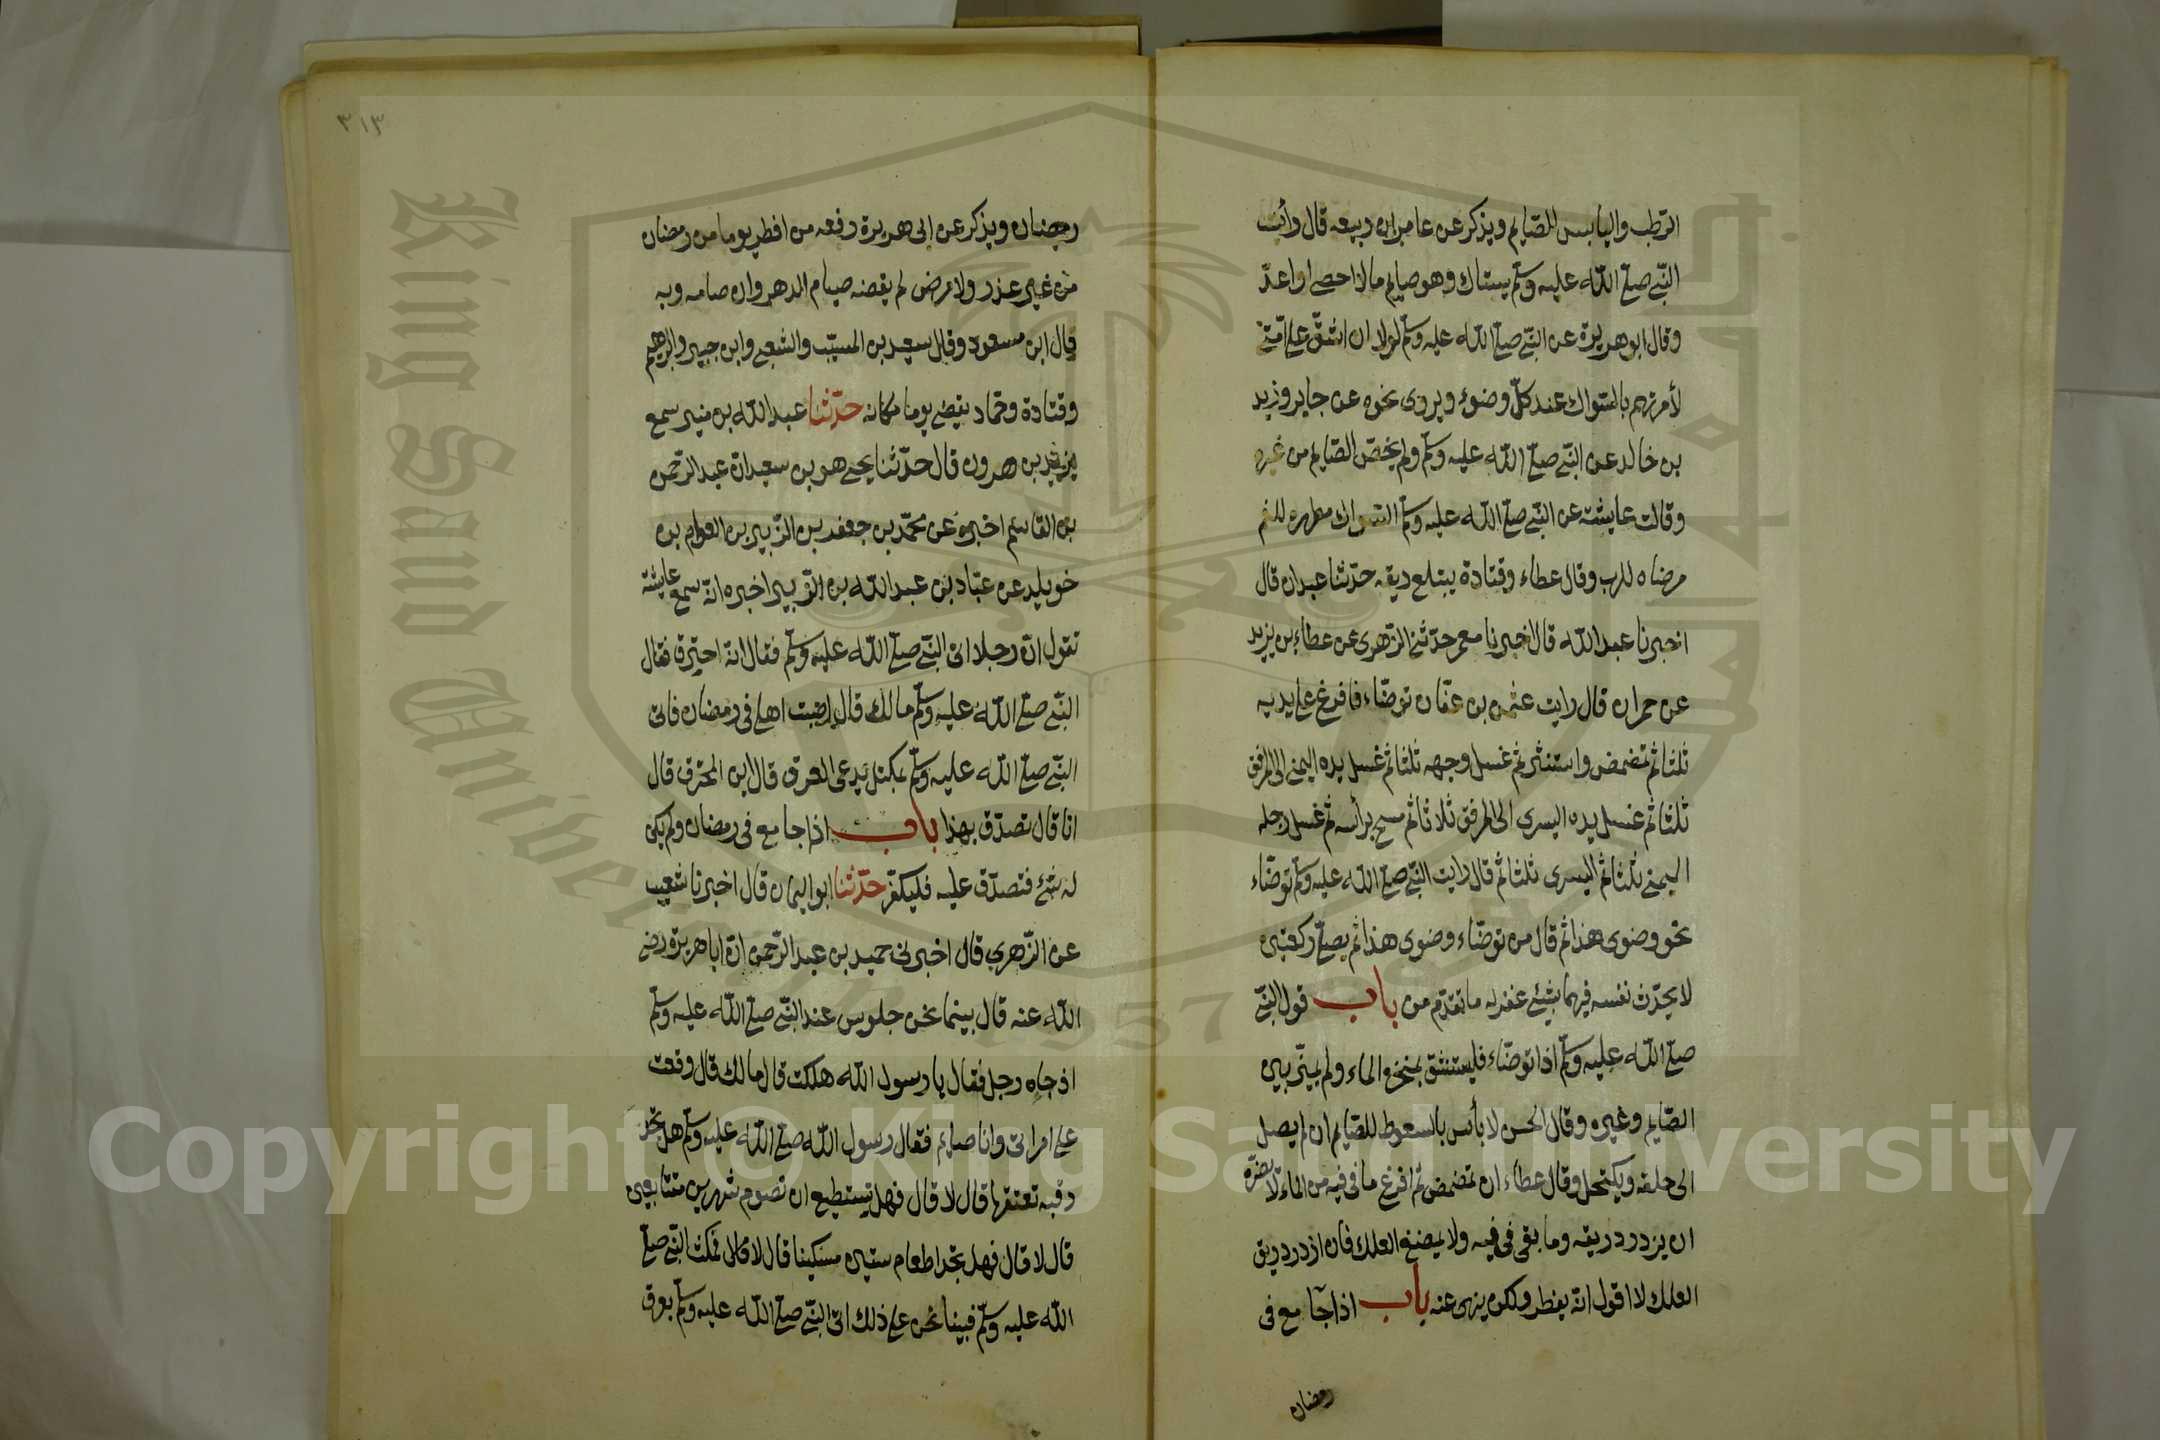 الرّطب واليابس للصّايم ويذكر عن عامر ابن ربيعه قال رأيت
النّبي صلّى اللّه عليه وسلّم يستاك وهو صايم مالا احصى او اعدّ
وقال ابو هريرة عن النّبي صلّى اللّه عليه وسلّم لولا ان اشقّ على امّتي
لأمرتهم بالسّواك عند كلّ وضوء ويروى نحوه عن جابر وزيد
بن خالد عن النّبي صلّى اللّه عليه وسلّم ولم يخصّ الصّايم من غيره
وقالت عايشة عن النّبي صلّى اللّه عليه وسلّم السّواك مطهره للفم
مرضاه للرب وقال عطاء وقتادة يبتلع ريقه حدّثنا عبدان قال
اخبرنا عبد اللّه قال اخبرنا معمر حدّثني الزّهرى عن عطاء بن يزيد
عن حمران قال رايت عثمن بن عفّان توضّاء فافرغ على يديه
ثلثا ثم تمضمض واستنثر ثم غسل وجهه ثلثا ثم غسل يده اليمنى الى المرفق
ثلثا ثم غسل يده اليسرى الى المرفق ثلاثا ثم مسح برأسه ثم غسل رجله
اليمنى ثلثا ثم اليسرى ثلثا ثم قال رايت النّبي صلّى اللّه عليه وسلّم توضّاء
نحو وضوى هذا ثم قال من توضّاء وضوى هذا ثم يصلّى ركعتين
لا يحدّث نفسه فيهما بشيئ غفر له ما تقدّم من باب قول النّبي
صلّى اللّه عليه وسلّم اذا توضّاء فليستنشق بمنخره الماء ولم يميّز بين
الصّايم وغيره وقال الحسن لا بأس بالسعوط للصّايم ان لم يصل
الى حلقه ويكتحل وقال عطاء ان تمضمض ثم افرغ ما فى فيه من الماء لا يضرّه
ان يزدرد ريقه وما بقى فى فيه ولا يمضغ العلك فان ازدرد ريق
العلك لا اقول انّه يفطر ولكن ينهى عنه باب اذا جامع فى
رمضان
٣١٣
رمضان ويذكر عن ابى هريرة رفعه من افطر يوما من رمضان
من غير عذر ولا مرض لم يقضه صيام الدهر وان صامه وبه
قال ابن مسعود وقال سعيد بن المسيّب والشعبى وابن جبير وابرهيم
وقتادة وحمّاد يقضى يوما مكانه حدّثنا عبد اللّه بن منير سمع
يزيد بن هرون قال حدّثنا يحيى هو بن سعيد انّ عبد الرّحمن
بن القاسم اخبره عن محمّد بن جعفر بن الزّبير بن العوام بن
خويلد عن عبّاد بن عبد اللّه بن الزّبير اخبره انّه سمع عايشة
تقول انّ رجلا اتى النّبي صلّى اللّه عليه وسلّم فقال انّه احترق فقال
النّبي صلّى اللّه عليه وسلّم مالك قال اصبت اهلى فى رمضان فاتى
النّبي صلّى اللّه عليه وسلّم بمكتل يدعى العرق قال اين المحترق قال
انا قال تصدّق بهذا باب اذا جامع فى رمضان ولم يكن
له شئ فتصدّق عليه فليكفّر حدّثنا ابو اليمان قال اخبرنا شعيب
عن الزّهري قال اخبرنى حميد بن عبد الرّحمن انّ ابا هريرة رضى
اللّه عنه قال بينما نحن جلوس عند النّبي صلّى اللّه عليه وسلّم
اذ جاه رجل فقال يا رسول اللّه هلكت قال مالك قال وقعت
على امراتى وانا صايم فقال رسول اللّه صلّى اللّه عليه وسلّم هل تجد
رقبه تعتقها قال لا قال فهل تستطيع ان تصوم شهرين متتابعين
قال لا قال فهل تجد اطعام ستين مسكينا قال لا قال فمكث النّبي صلّى
اللّه عليه وسلّم فبينا نحن على ذلك اتى النّبي صلّى اللّه عليه وسلّم بعرق
King Saud University
1957
Copyright © King Saud University